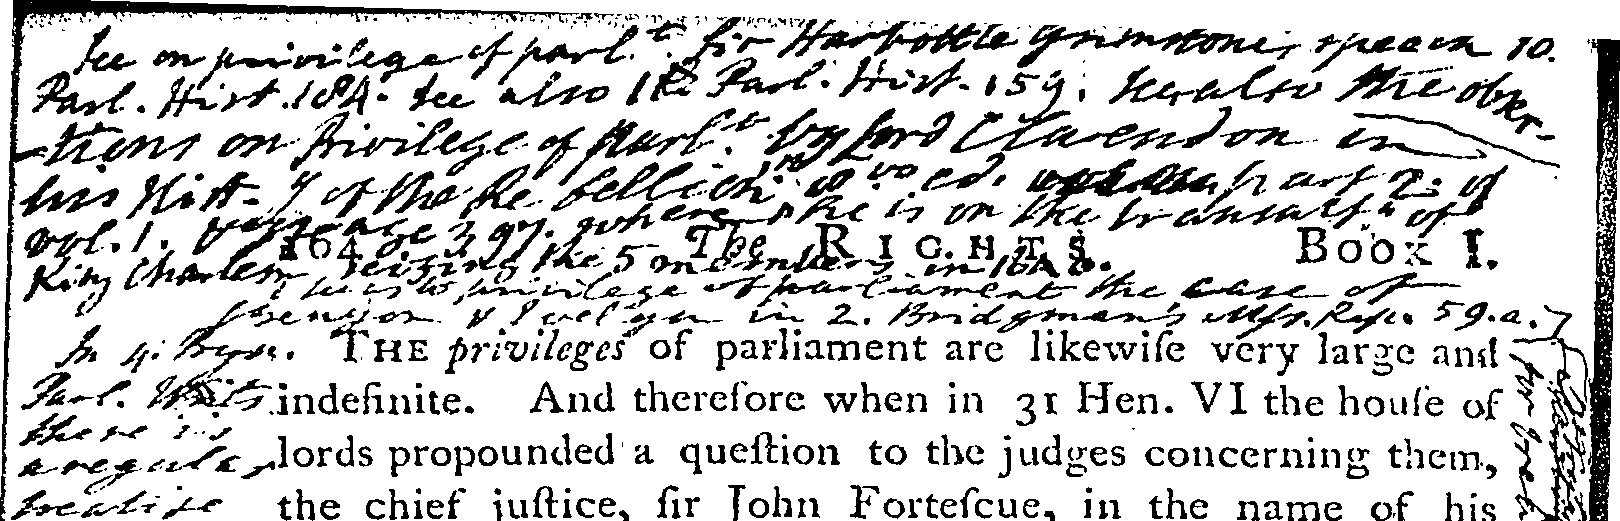 See on privilege of parl.t Sir Harbottle Grimstone's speech 10.
Parl. Hist. 184. See also 12 Parl. Hist. 159. See also the obser-
-tions on Privilege of Parl.t by Lord Clarendon in
his Hist. of the Rebellion 8vo ed. part 2. of
vol. 1. page 397. where he is on the transact.n of
King Charles seizing the 5 members in 1640.
164 The RIGHTS Book I.
privilege of parliament the case of
& Evelyn in 2. Bridgman's Mss. Rep. 59.a.
In 4. Pryn.
Parl. Writs
there is
a regular
treatise
THE privileges of parliament are likewiſe very large and
indefinite. And therefore when in 31 Hen. VI the houſe of
lords propounded a queſtion to the judges concerning them,
the chief juſtice, ſir John Forteſcue, in the name of his